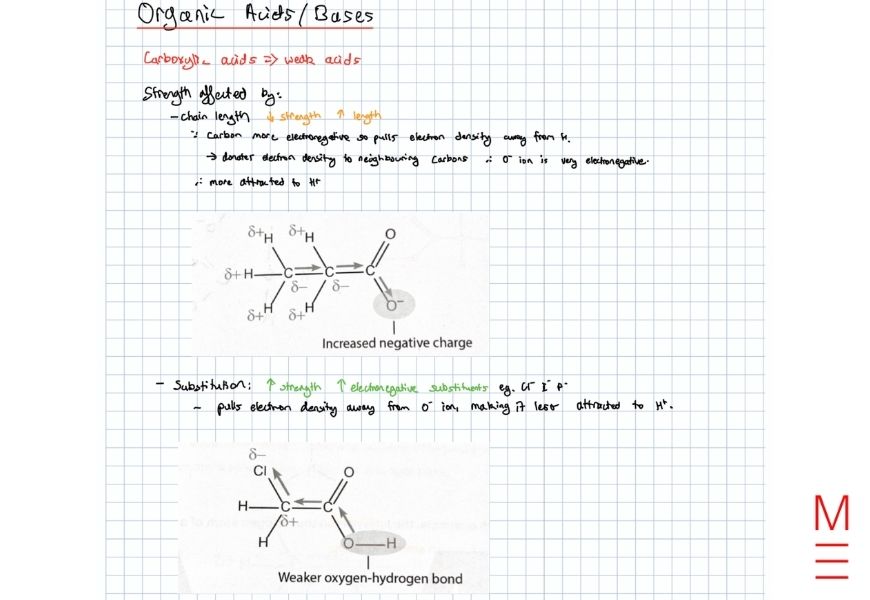 Organic Acids/Bases
Carboxylic acids => weak acids
Strength affected by:
- chain length ↓ strength ↑ length
∵ Carbon more electronegative so pulls electron density away from H.
→ donates electron density to neighbouring carbons ∴ O⁻ ion is very electronegative.
∴ more attracted to H⁺
δ+H δ+H O
δ+ H C C C
δ- δ-
δ+H δ+H O⁻
Increased negative charge
- Substitution: ↑ strength ↑ electronegative substituents eg. Cl⁻ I⁻ F⁻
- pulls electron density away from O⁻ ion, making it less attracted to H⁺.
δ-
Cl O
H C C
δ+
H O H
Weaker oxygen-hydrogen bond
M